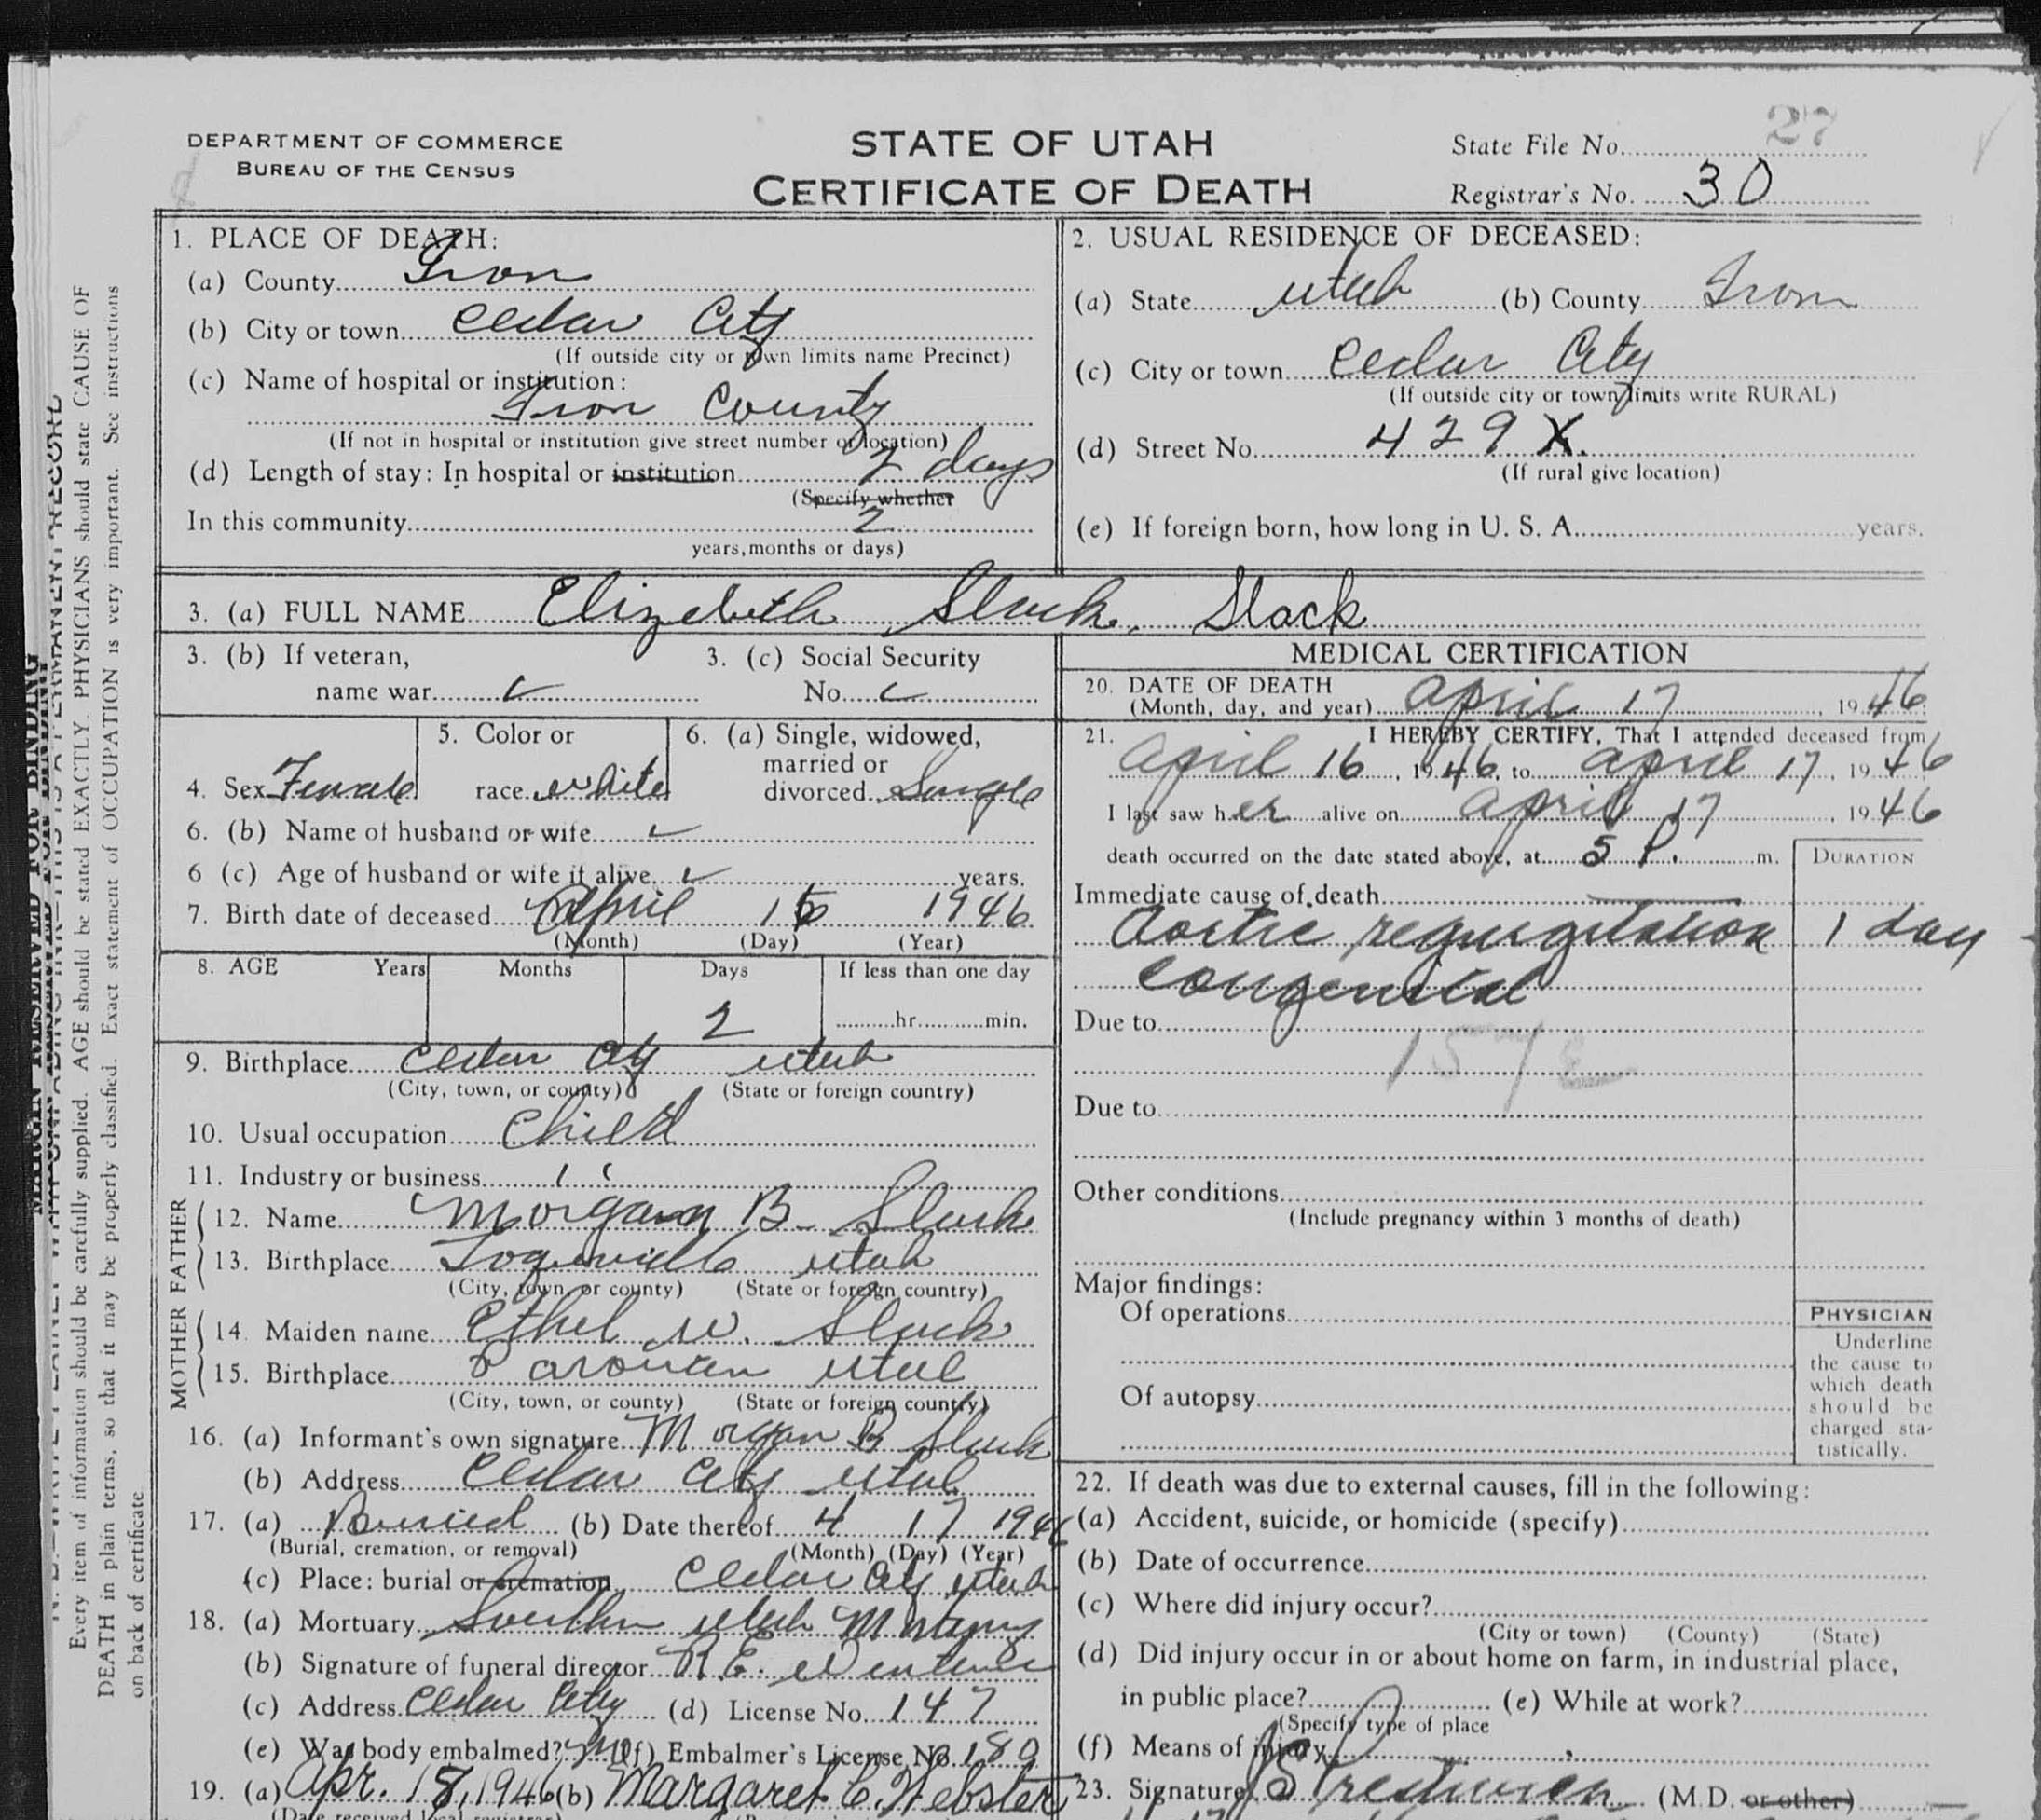 27
DEPARTMENT OF COMMERCE
BUREAU OF THE CENSUS
STATE OF UTAH
CERTIFICATE OF DEATH
State File No.
Registrar's No. 30
1. PLACE OF DEATH:
(a) County Iron
(b) City or town Cedar City
(If outside city or town limits name Precinct)
(c) Name of hospital or institution:
Iron County
(If not in hospital or institution give street number or location)
(d) Length of stay: In hospital or institution 2 days
(Specify whether
In this community 2
years, months or days)
2. USUAL RESIDENCE OF DECEASED:
(a) State Utah (b) County Iron
(c) City or town Cedar City
(If outside city or town limits write RURAL)
(d) Street No. 429 X.
(If rural give location)
(e) If foreign born, how long in U. S. A. years.
3. (a) FULL NAME Elizebeth Slack. Slack
3. (b) If veteran,
name war
3. (c) Social Security
No.
4. Sex Female
5. Color or
race white
6. (a) Single, widowed,
married or
divorced Single
6. (b) Name of husband or wife
6 (c) Age of husband or wife if alive years.
7. Birth date of deceased April 16 1946
(Month) (Day) (Year)
8. AGE Years Months Days If less than one day
2 hr. min.
9. Birthplace Cedar City Utah
(City, town, or county) (State or foreign country)
10. Usual occupation Child
11. Industry or business
FATHER
12. Name Morgan B Slack
13. Birthplace Toquerville Utah
(City, town, or county) (State or foreign country)
MOTHER
14. Maiden name Ethel W. Slack
15. Birthplace Parowan Utah
(City, town, or county) (State or foreign country)
16. (a) Informant's own signature Morgan B Slack
(b) Address Cedar City Utah
17. (a) Buried (b) Date thereof 4 17 1946
(Burial, cremation, or removal) (Month) (Day) (Year)
(c) Place: burial or cremation Cedar City Utah
18. (a) Mortuary Southern Utah
(b) Signature of funeral director R E.
(c) Address Cedar City (d) License No. 147
(e) Was body embalmed? (f) Embalmer's License No. 180
19. (a) Apr. 18, 1946 (b) Margaret C. Webster
(Date received local registrar)
MEDICAL CERTIFICATION
20. DATE OF DEATH
(Month, day, and year) April 17, 1946
21. I HEREBY CERTIFY, That I attended deceased from
April 16, 1946, to April 17, 1946
I last saw her alive on April 17, 1946
death occurred on the date stated above, at 5 P. m.
DURATION
Immediate cause of death
Aortic regurgitation 1 day
congenital
Due to
157
Due to
Other conditions
(Include pregnancy within 3 months of death)
Major findings:
Of operations
Of autopsy
PHYSICIAN
Underline
the cause to
which death
should be
charged sta-
tistically.
22. If death was due to external causes, fill in the following:
(a) Accident, suicide, or homicide (specify)
(b) Date of occurrence
(c) Where did injury occur?
(City or town) (County) (State)
(d) Did injury occur in or about home on farm, in industrial place,
in public place? (e) While at work?
(Specify type of place
(f) Means of injury
23. Signature (M.D. or other)
MARGIN RESERVED FOR BINDING
Every item of information should be carefully supplied. AGE should be stated EXACTLY. PHYSICIANS should state CAUSE OF
DEATH in plain terms, so that it may be properly classified. Exact statement of OCCUPATION is very important. See instructions
on back of certificate